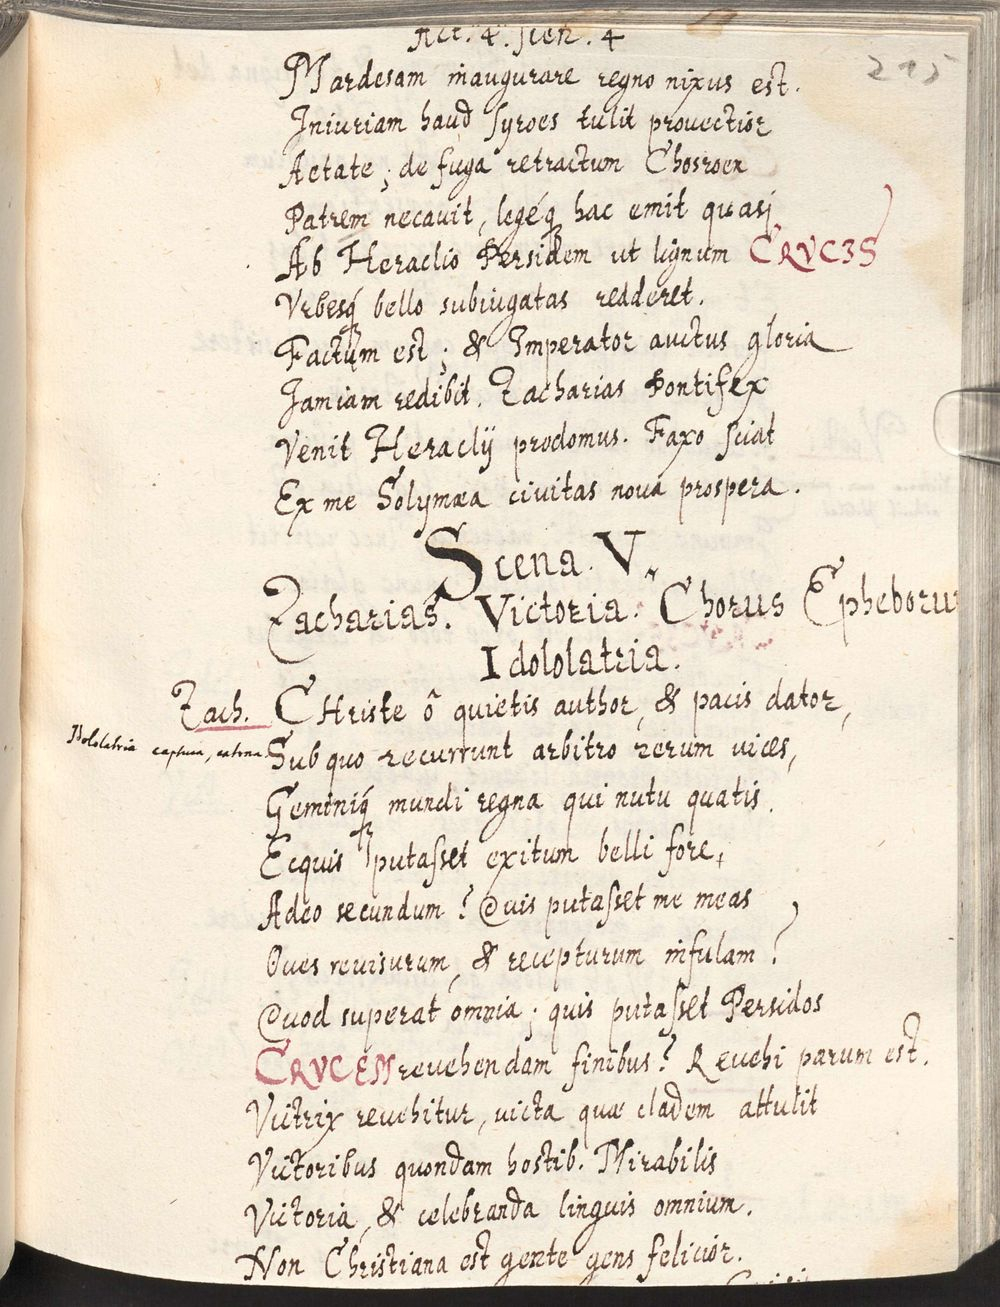 Act. 4. scen. 4
215
Mardesam inaugurare regno nixus est.
Iniuriam haud Syroes tulit provectior
Aetate; de fuga retractum Chosroen
Patrem necavit, legéq; hac emit quasi
Ab Heraclio Persidem ut lignum CRVCIS
Vrbesq; bello subiugatas redderet.
Factum est; & Imperator auctus gloria
Iamiam redibit. Zacharias Pontifex
Venit Heraclij prodomus. Faxo sciat
Ex me Solymaea civitas nova prospera.
Scena. V.
Zacharias. Victoria. Chorus Epheborum
Idololatria.
Zach. CHriste ô quietis author, & pacis dator,
Idololatria captiva, catena
Sub quo recurrunt arbitro rerum vices,
Geminiq; mundi regna qui nutu quatis.
Ecquis putasset exitum belli fore,
Adeo secundum? Quis putasset me meas
Oves revisurum, & recepturum infulam?
Quod superat omnia; quis putasset Persidos
CRVCEM revehendam finibus? Revehi parum est.
Victrix revehitur, victa quae cladem attulit
Victoribus quondam hostib. Mirabilis
Victoria, & celebranda linguis omnium.
Non Christiana est gente gens felicior.